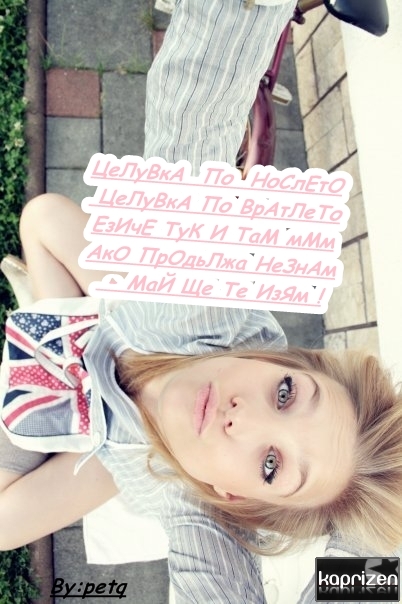 ЦеЛуВкА По НоСлЕтО
ЦеЛуВкА По ВрАтЛеТо
ЕзИчЕ ТуК И ТаМ мМм
АкО ПрОдьЛжа НеЗнАм
МаЙ Ще Те ИзЯм !
By:petq
kaprizen